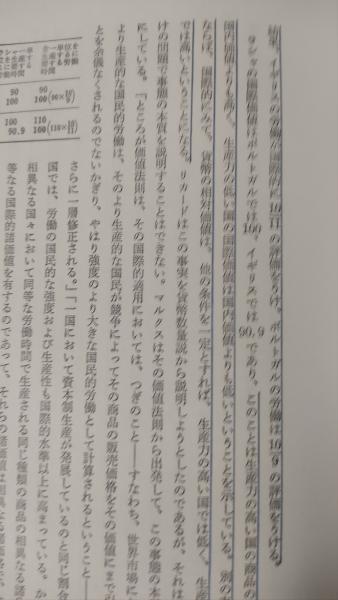 結果、イギリスの労働が国際的に10/11の評価をうけ、ポルトガルの労働は10/9の評価をうける。
ラシャの国際価値はポルトガルでは100、イギリスでは90.9であり、このことは生産力の高い国の商品の
国内価値よりも高く、生産力の低い国の国際価値は国内価値よりも低いということを示している。別の
ならば、国際的にみて、貨幣の相対価値は、他の条件を一定とすれば、生産力の高い国では低く、生産
では高いということになる。リカードはこの事実を貨幣数量説から説明しようとしたのであるが、それは
けの問題で事態の本質を説明することはできない。マルクスはその価値法則から出発して、この事態の本
にしている。「ところが価値法則は、その国際的適用においては、つぎのこと――すなわち、世界市場に
より生産的な国民的労働は、そのより生産的な国民が競争によってその商品の販売価格をその価値にまで
とを余儀なくされるのでないかぎり、やはり強度のより大きな国民的労働として計算されるということ―
さらに一層修正される。」「一国において資本制生産が発展しているのと同じ割合
国では、労働の国民的な強度および生産性も国際的水準以上に高まっている。か
相異なる国々において同等な労働時間で生産される同じ種類の商品の相異なる諸
等なる国際的諸価値を有するのであって、それらの諸価値は相異なる諸価格
単位を生産するに要する労働時間
90 100(90×10/9)
100 110
90.9 100(110×10/11)